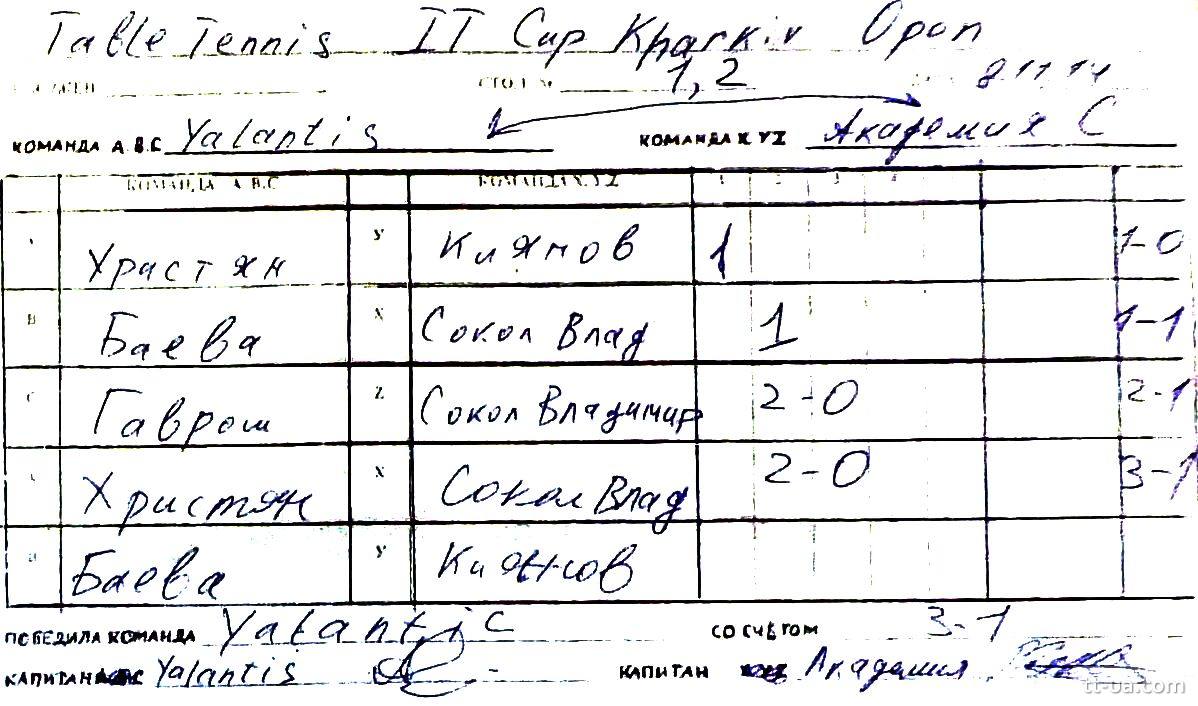 Table Tennis IT Cup Kharkiv Open
СТОЛ № 1,2 8.11.14
КОМАНДА А.В.С Yalantis КОМАНДА X.YZ Академия С
КОМАНДА А.В.С КОМАНДА X.Y.Z 1 2 3 4
А Храстян У Киянов 1 1-0
В Баева Х Сокол Влад 1 1-1
С Гавреш Z Сокол Владимир 2-0 2-1
А Христян X Сокол Влад 2-0 3-1
В Баева У Киянов
ПОБЕДИЛА КОМАНДА Yalantic СО СЧЁТОМ 3-1
КАПИТАН Yalantis КАПИТАН Академия
tt-ua.com